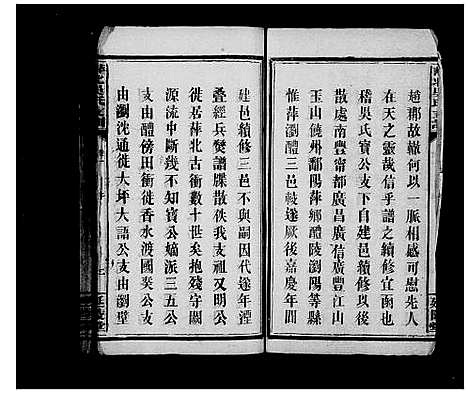 趙鄰故轍何以一脈相感可慰先人
在天之靈哉信乎譜之續修宜亟也
稽吳氏寶公支下自建邑續修以後
散處南豐甯都廣昌廣信廣豐江山
玉山饒州鄱陽萍鄉醴陵瀏陽等縣
惟萍瀏醴三邑較遂厥後嘉慶年間
建邑續修三邑不與嗣因代遠年湮
叠經兵燹譜牒散佚我支祖又明公
徙居萍北古衝數十世矣抱殘守闕
源流中斷幾不知寶公嫡派三五公
支由醴傍田衝徙香水渡國奕公支
由瀏沈通徙大坪大語公支由瀏壁